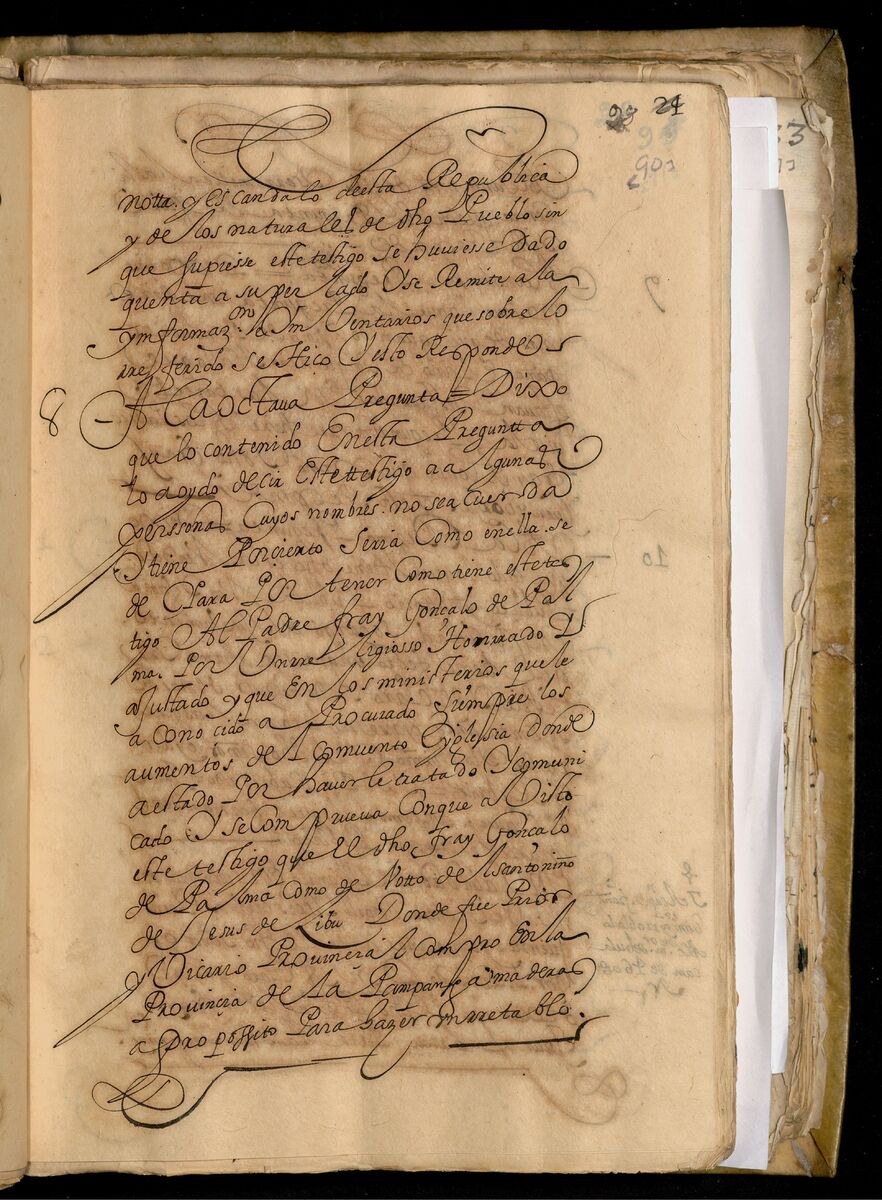 24
notta. y escandalo deesta Republica
y de los naturales de dho Pueblo sin
que supiesse este testigo se huuiesse dado
quenta a su perlado Y se Remite a la
ynformazon. e Ynventarios que sobre lo
rreferido se Hiço Y esto Responde
8 A la octaua Pregunta = Dixo
que lo contenido En esta Pregunta
lo a oydo decir Este testigo a algunas
perssonas Cuyos nombres. no se acuerda
Y tiene Por cierto Seria Como en ella. se
de Clara Por tener Como tiene este tes
tigo Al Padre fray Gonçalo de Pal
ma. Por Un rreligiosso Honrrado y
ajustado y que En los ministerios que le
a cono cido a Procurado siempre los
aumentos del Comuento e yglesia donde
a estado Por hauerle tratado Y comuni
cado Y se Comprueua Con que a Visto
este testigo que El dho fray Gonçalo
de Palma Como de Votto del santo niño
de Jesus de Donde fue Prior
y Vicario Provincial compro En la
Provincia de La Pampanga maderas
a Proposito Para hazer un rretablo.